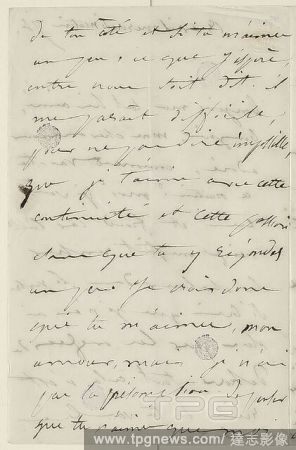 de ton côté et si tu m'aimes
un peu, ce que j'espère,
entre nous soit dit, il
me paraît difficile,
pour ne pas dire impossible,
que je t'aime avec cette
continuité et cette passion
sans que tu y répondes
un peu. Je crois donc
que tu m'aimes, mon
amour, mais je n'ai
pas la prétention de
que tu
TPG
www.tpgnews.com/達志影像